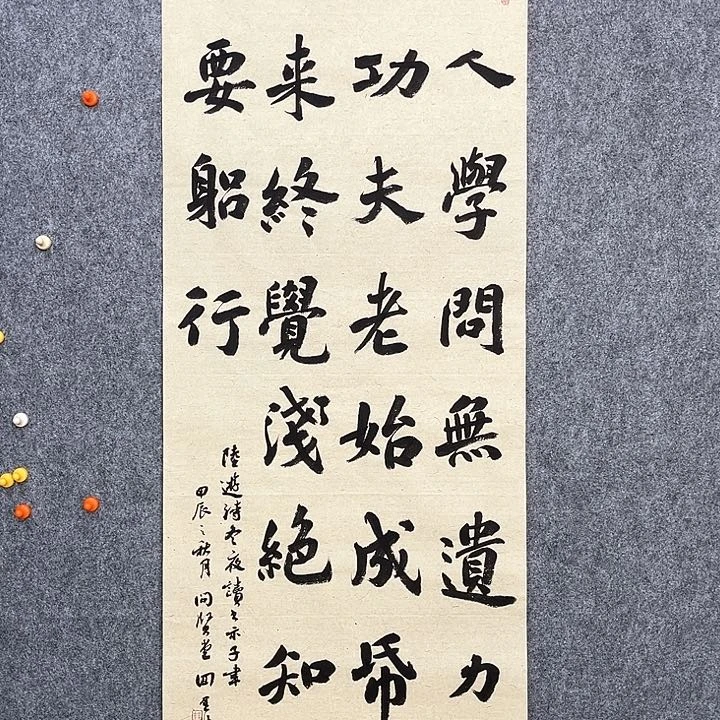 人學問無遺力
功夫老始成帋
来終覺淺絕知
要躳行
陸遊詩冬夜讀書示子聿
甲辰之秋月 問賢堂 田